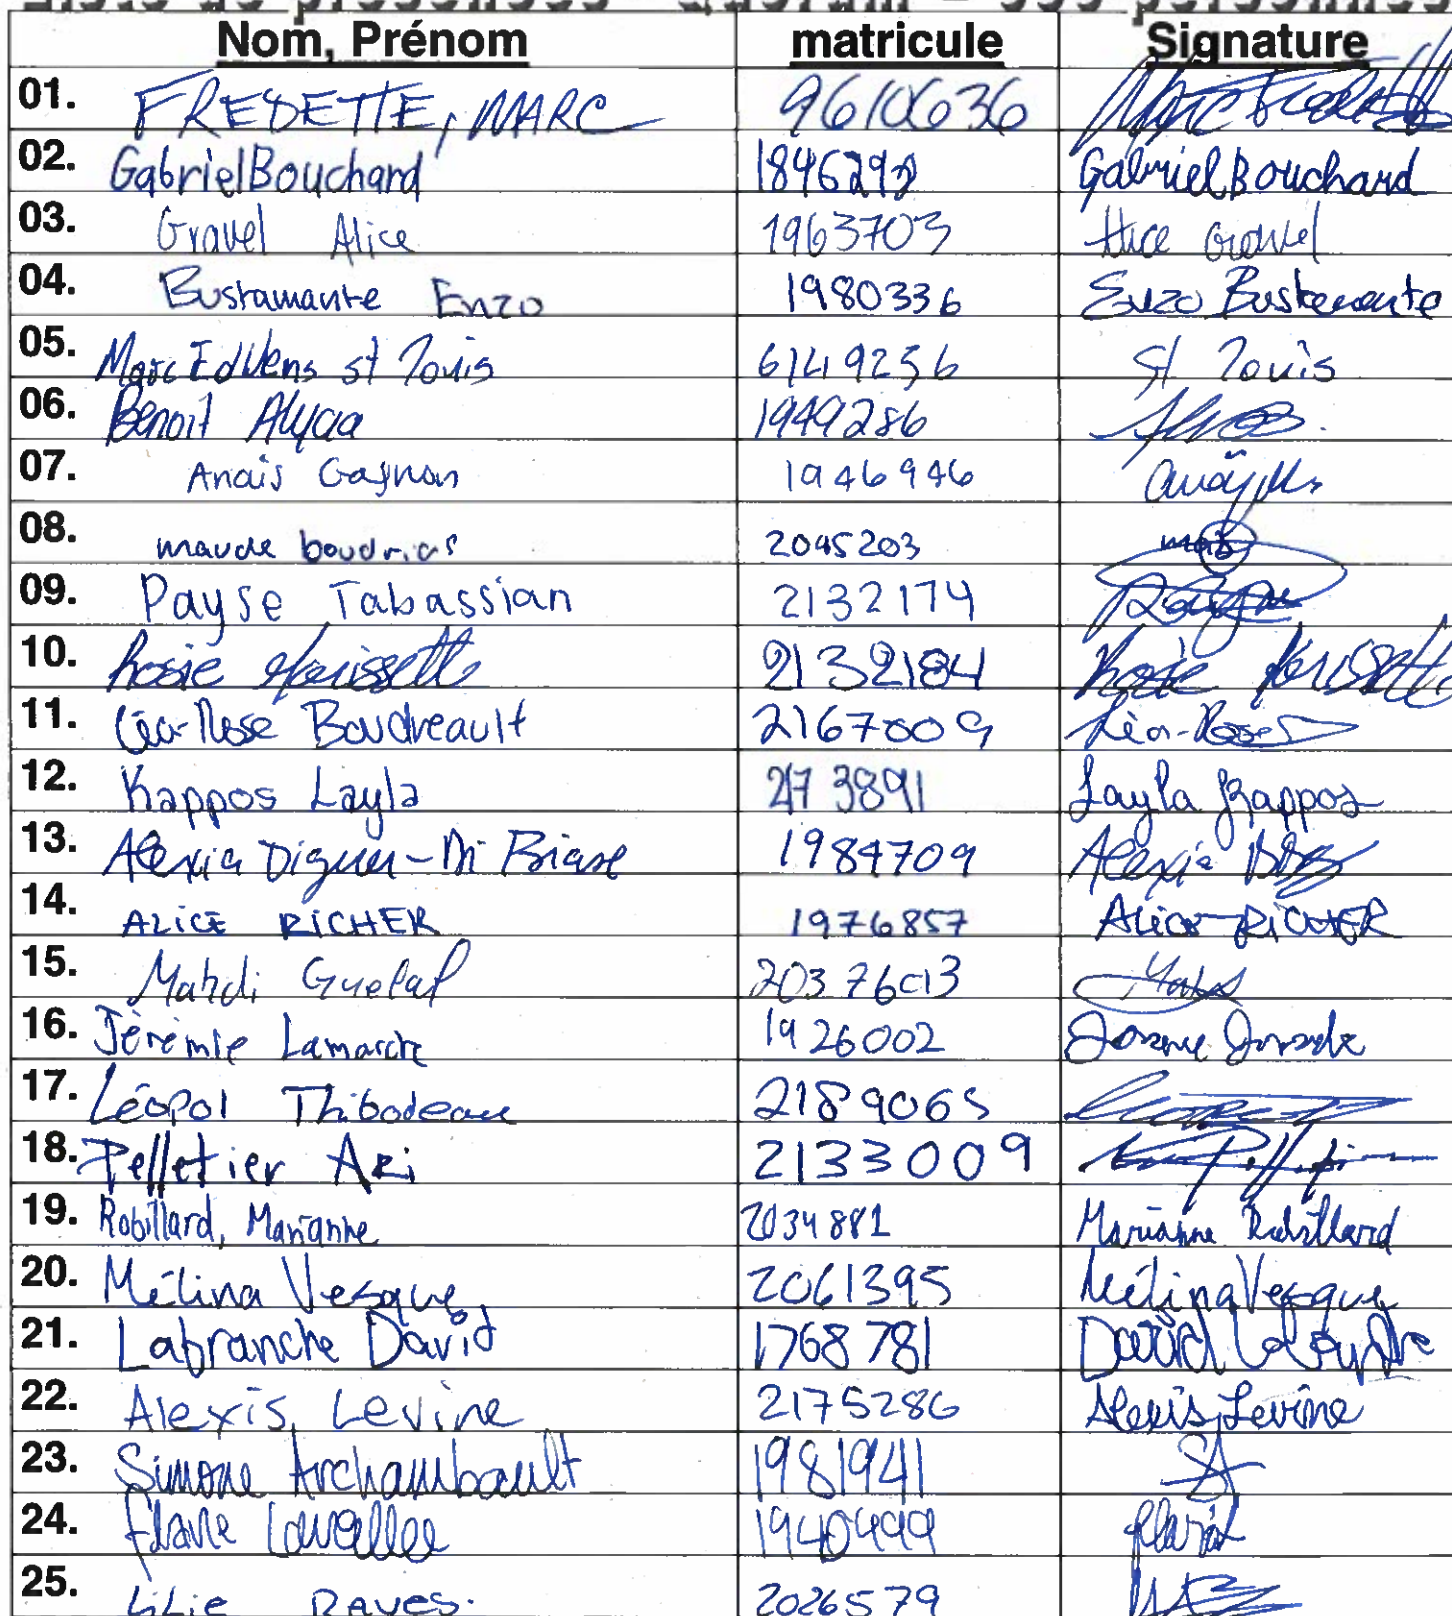 Liste de présences - Quorum - 355 personnes
Nom, Prénom matricule Signature
01. FREDETTE, MARC 9610636
02. Gabriel Bouchard 1846292 Gabriel Bouchard
03. Gravel Alice 1963703 Alice Gravel
04. Bustamante Enzo 1980336 Enzo Bustamante
05. Marc Edwens st Louis 6149256 St Louis
06. Benoit Alycia 1949286
07. Anaïs Gagnon 1946946
08. maude boudrias 2045203
09. Payse Tabassian 2132174
10. Rosie 2132184 Rosie
11. Léa-Rose Boudreault 2167009 Léa-Rose
12. Kappos Layla 2173891 Layla Kappos
13. Alexia Diguer-Di Biase 1984709 Alexia
14. ALICE RICHER 1976857 ALICE RICHER
15. Mahdi Guelaf 2037613
16. Jérémie Lamarche 1926002
17. Léopol Thibodeau 2189065
18. Pelletier Ari 2133009
19. Robillard, Marianne 2034881 Marianne Robillard
20. Mélina Vesque 2061395 Mélina Vesque
21. Labranche David 1768781 David Labranche
22. Alexis Levine 2175286 Alexis Levine
23. Simone Archambault 1981941 SA
24. Flavie Lavallée 1940499 Flavie
25. LiLie DAVES. 2026579